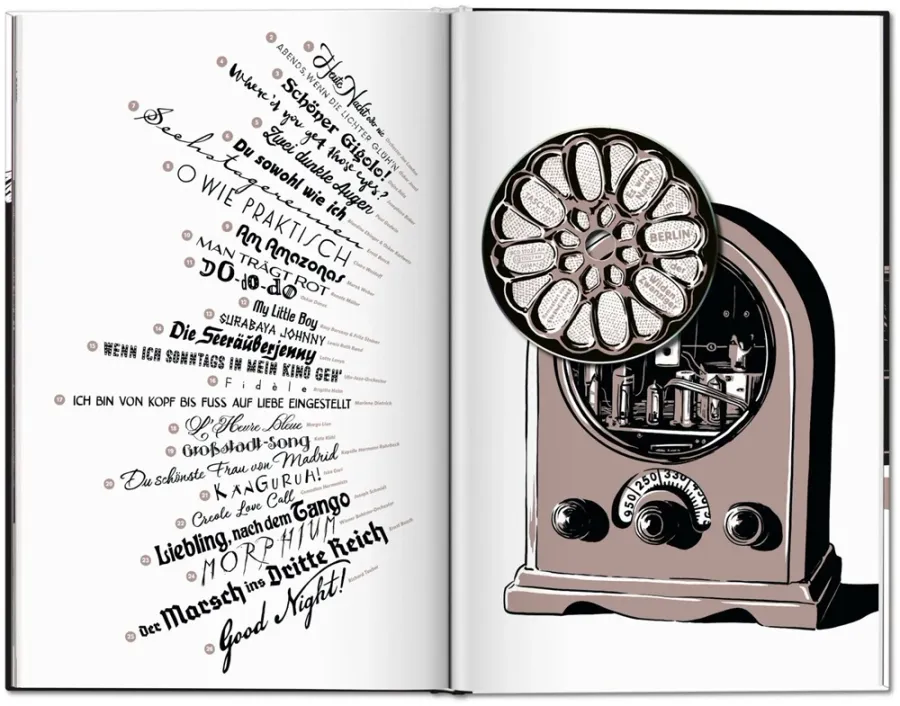 1 Heute Nacht oder nie
2 ABENDS, WENN DIE LICHTER GLÜH'N
3 Schöner Gigolo!
4 Where'd you get those eyes?
5 Zwei dunkle Augen
6 Du sowohl wie ich
7 Sechstagerennen
8 O WIE PRAKTISCH
9 Am Amazonas
10 MAN TRÄGT ROT
11 DO-do-do
12 My Little Boy
13 SURABAYA JOHNNY
14 Die Seeräuberjenny Lotte Lenya
15 WENN ICH SONNTAGS IN MEIN KINO GEH'
16 Fidèle
17 ICH BIN VON KOPF BIS FUSS AUF LIEBE EINGESTELLT Marlene Dietrich
18 L'Heure Bleue Margo Lion
19 Großstadt-Song
20 Du schönste Frau von Madrid
21 KÄNGURUH!
22 Creole Love Call
23 Liebling, nach dem Tango Joseph Schmidt
24 MORPHIUM
25 Der Marsch ins Dritte Reich Ernst Busch
26 Good Night! Richard Tauber
Es wird Nacht
TASCHEN
BERLIN
der
Wilden
Zwanziger
950 250 330